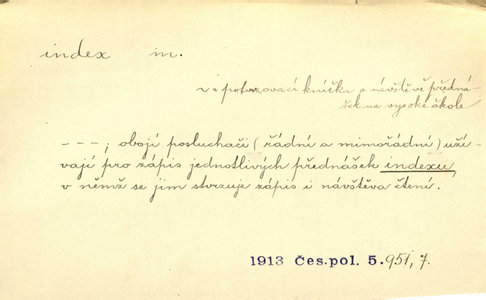 index m.
v = potvrzovací knížka o návštěvě předná-
šek na vysoké škole
---; obojí posluchači (řádní a mimořádní) uží-
vají pro zápis jednotlivých přednášek indexu,
v němž se jim stvrzuje zápis i návštěva čtení.
1913 Čes. pol. 5. 951, 7.